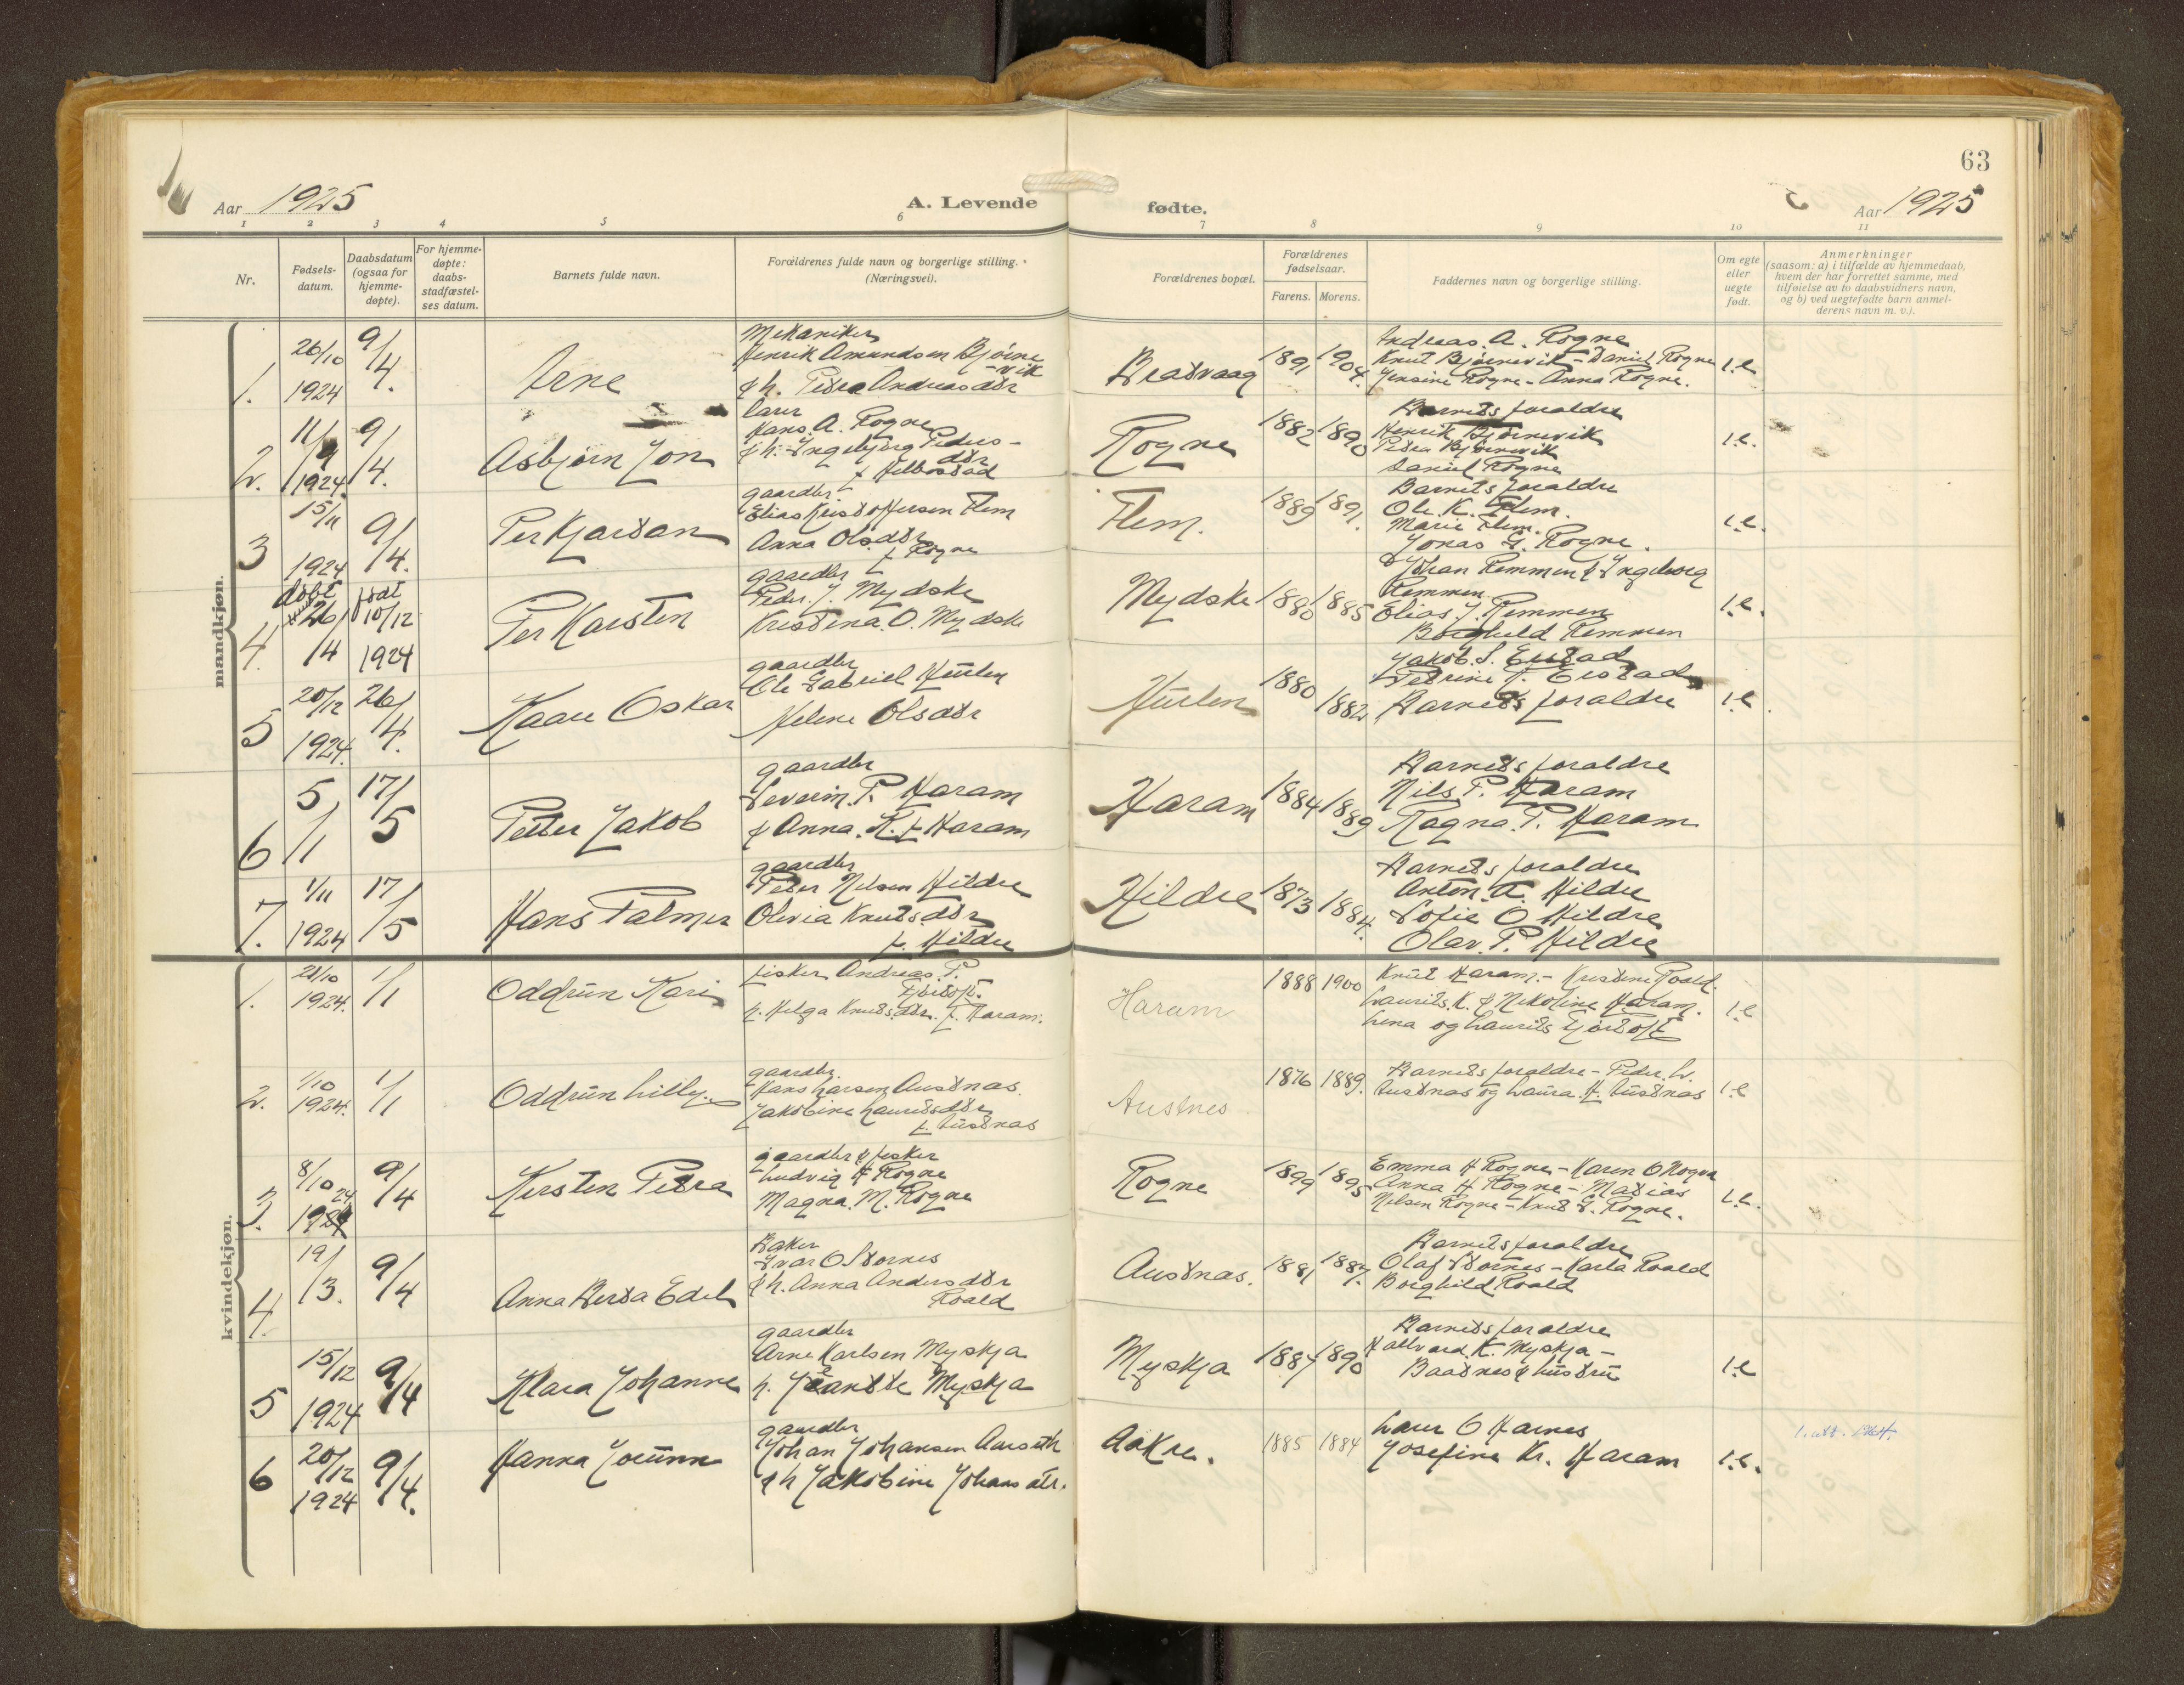 63
Aar 1925
A. Levende
fødte.
Aar 1925
1 2 3 4 5 6 7 8 9 10 11
Nr.
Fødsels-
datum.
Daabsdatum
(ogsaa for
hjemme-
døpte).
For hjemme-
døpte:
daabs-
stadfæstel-
ses datum.
Barnets fulde navn.
Forældrenes fulde navn og borgerlige stilling.
(Næringsvei).
Forældrenes bopæl.
Forældrenes
fødselsaar.
Farens. Morens.
Faddernes navn og borgerlige stilling.
Om egte
eller
uegte
født.
Anmerkninger
(saasom: a) i tilfælde av hjemmedaab,
hvem der har forrettet samme, med
tilføielse av to daabsvidners navn,
og b) ved uegtefødte barn anmel-
derens navn m. v.).
mandkjøn.
1.
26/10
1924
9/4.
Arne
Mekaniker
Henrik Amundsen Bjørne
-vik
& h. Petra Andreasdtr
Bratvaag
1891
1904.
Andreas. A. Rogne
Knut Bjørnevik - Daniel Rogne
Jensine Rogne - Anna Rogne.
i.e
2.
11/9
1924.
9/4.
Asbjørn Jon
lærer
Hans. A. Rogne
& h. Ingebjørg Peders-
dtr
f Helbostad
Rogne
1882
1890
Barnets foraldre
Henrik Bjørnevik
Petra Bjørnevik
Daniel Rogne
i.e.
3
15/11
1924
9/4.
Per Kjartan
gaardbr
Elias Kristoffersen Flem
Anna Olsdtr
f Rogne
Flem.
1889
1891.
Barnets foraldre
Ole. K. Flem.
Marie Flem.
Jonas G. Rogne.
i.e.
4.
døbt
26/
14
født
10/12
1924
Per Karsten
gaardbr
Peder. J. Mydske
Kristina. O. Mydske
Mydske
1880
1885
Johan Remmen & Ingeborg
Remmen.
Elias J. Remmen
Borghild Remmen
i.e.
5
20/12
1924.
26/4.
Kaare Oskar
gaardbr
Ole Gabriel Hurlen
Helene Olsdtr
Hurlen
1880
1882
Jakob. S. Eistad
Petrine T. Eistad
Barnets foraldre
i.e.
6
5/1
17/5
Petter Jakob
gaardbr
Severin. P. Haram
& Anna. K. f Haram
Haram
1884
1889
Barnets foraldre
Nils P. Haram
Ragna. P. Haram
7.
1/11
1924
17/5
Hans Palmer
gaardbr
Peter Nilsen Hildre
Olivia Knutsdtr
f. Hildre
Hildre
1873
1884.
Barnets foraldre
Anton. A. Hildre
Sofie O Hildre
Olav. P. Hildre
kvindekjøn.
1.
21/10
1924.
1/1
Oddrun Kari
fisker Andreas. P.
Fjørtoft.
h. Helga Knutsdtr. f. Haram.
Haram
1888
1900
Knut Haram. - Kristine Roald.
Laurits. K. & Nikoline Haram.
Lena og Laurits Fjørtoft
i.e
2.
1/10
1924.
1/1
Oddrun Lilly.
gaardbr.
Hans Larsen Austnas.
Jakobine Lauritsdtr
f. Austnas
Austnes
1876
1889.
Barnets foraldre - Peder. L.
Austnas og Laura. H. Austnas
i.e
3.
8/10
24
1924
9/4
Kersten Petra
gaardbr & fisker
Ludvig H Rogne
Magna. M. Rogne
Rogne
1899
1895
Emma H Rogne - Karen O Rogne
Anna H Rogne - Matias
Nilsen Rogne - Knut G. Rogne.
i.e.
4.
19/3.
9/4
Anna Berta Edel
Baker
Ivar O Stornes
& h. Anna Andersdtr
Roald
Austnas.
1881
1887.
Barnets foraldre
Olaf Stornes - Karla Roald
Borghild Roald
5
15/12
1924
9/4
Klara Johanne
gaardbr
Arne Karlsen Myskja
h. Jeanette Myskja
Myskja
1884
1890
Barnets foraldre
Hallvard. K. Myskja -
Baatnes & hustru
i.e
6
20/12
1924
9/4.
Hanna Jorunn
gaardbr
Johan Johansen Aarseth
& h Jakobine Johansdtr.
Aakre.
1885
1884
Lærer O Harnes
Josefine Kr. Haram
i.e.